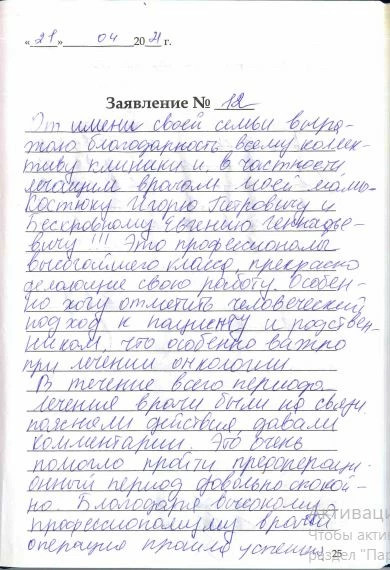 «21» 04 2021 г.
Заявление № 12
От имени своей семьи выра-
жаю благодарность всему коллек-
тиву клиники и, в частности,
лечащим врачам моей мамы
Костюку Игорю Петровичу и
Бескровному Евгению Геннадье-
вичу!!! Это профессионалы
высочайшего класса, прекрасно
делающие свою работу. Особен-
но хочу отметить человеческий
подход к пациенту и родствен-
никам, что особенно важно
при лечении онкологии.
В течение всего периода
лечения врачи были на связи,
поясняли действия, давали
комментарии. Это очень
помогло пройти предопераци-
онный период довольно спокой-
но. Благодаря высокому
профессионализму врачей
операция прошла успешно
25
Активаци
Чтобы акти
раздел "Пар